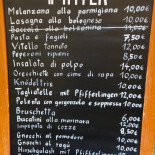 Melanzana alla parmigiana 10,00€
Lasagna alla bolognese 10,00€
Baccalà alla
Pasta e fagioli 7,50€
Vitello tonnato 12,00€
Peperoni ripieni 8,50€
Insalata di polpo 14,00€
Orecchiette con cime di rapa 10,00€
Knödeltris 10,00€
Tagliatelle mit Pfifferlingen 12,00€
Polenta con gorgonzola e soppressa 10,00€
Bruschetta
Bucatini alla marinara 12,00€
Impepata di cozze 12,00€
Gnocchi al pomodoro 8,50€
Gnocchi al ragù 10,00€
Hirschgulasch mit Pfifferlingen